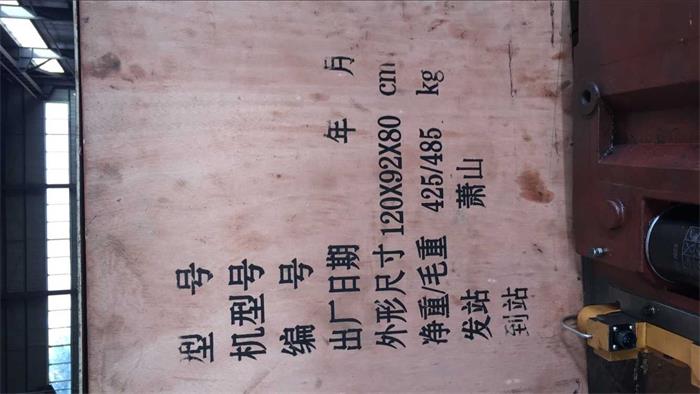 型 号
机型号
编 号
出厂日期 年 月
外形尺寸 120X92X80 cm
净重/毛重 425/485 kg
发站 萧山
到站